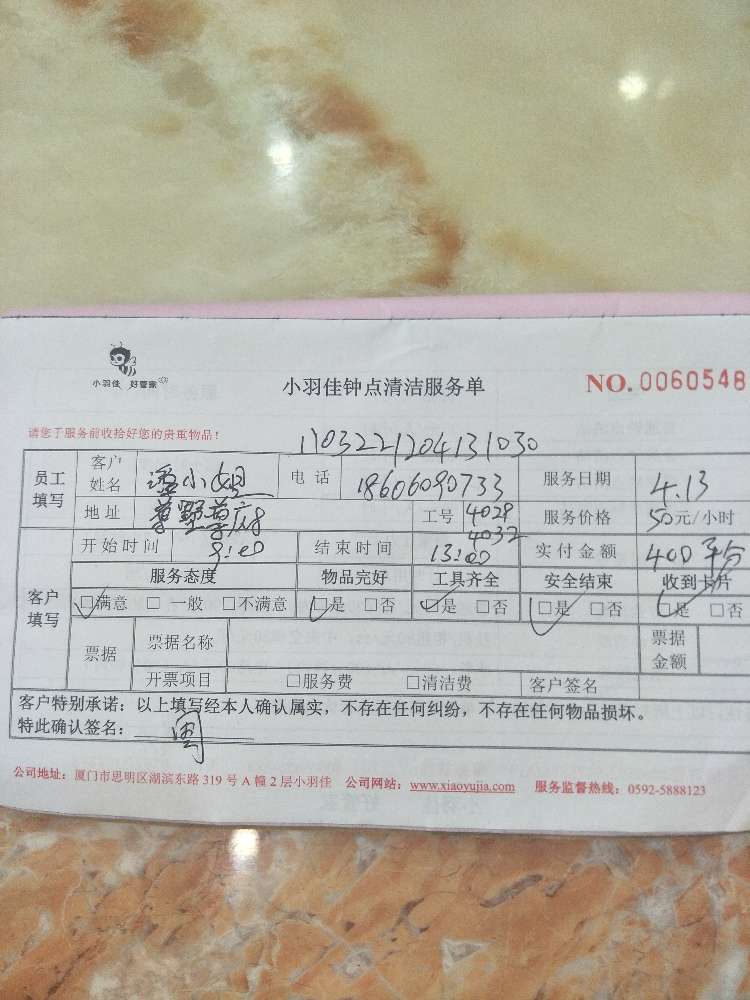 小羽佳 好管家
小羽佳钟点清洁服务单
NO. 0060548
请您于服务前收拾好您的贵重物品！
1103221204131030
员工填写 客户姓名 潘小姐 电话 18606090733 服务日期 4.13
地址 工号 4029 4032 服务价格 50元/小时
客户填写 开始时间 9:00 结束时间 13:00 实付金额 400 平台
服务态度 物品完好 工具齐全 安全结束 收到卡片
☑满意 □一般 □不满意 ☑是 □否 ☑是 □否 ☑是 □否 ☑是 □否
票据 票据名称 票据金额
开票项目 □服务费 □清洁费 客户签名
客户特别承诺：以上填写经本人确认属实，不存在任何纠纷，不存在任何物品损坏。
特此确认签名： 周
公司地址：厦门市思明区湖滨东路 319 号 A 幢 2 层小羽佳 公司网站：www.xiaoyujia.com 服务监督热线：0592-5888123